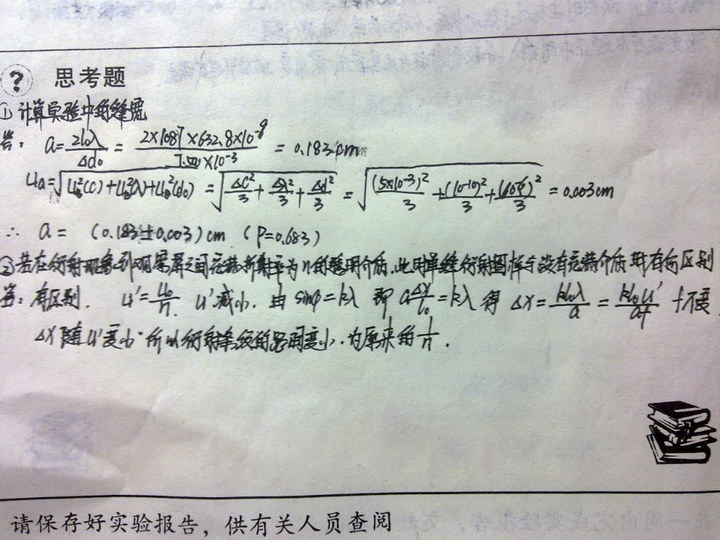 ? 思考题
① 计算实验中的缝宽
答: a = 2l₀λ/Δd₀ = 2×1.087×632.8×10⁻⁹/×10⁻³ = 0.183 cm
Ua = √(U_B²(C)+U_B²(λ)+U_B²(d₀)) = √(ΔC²/3 + Δλ²/3 + Δd²/3) = √((5×10⁻³)²/3 + (10⁻¹⁰)²/3 + /3) = 0.003cm
∴ a = (0.183±0.003)cm (P=0.683)
② 若在衍射现象到观察屏之间充满折射率为n的透明介质,此时单缝衍射图样与没有充满介质时有何区别
答: 有区别. u'=u₀/n u'减小. 由 sinφ=kλ 即 aΔx/l₀=kλ 得 Δx=kl₀λ/a=kl₀u'/af f不变
Δx随u'变小 所以衍射条纹的间变小.为原来的1/n.
请保存好实验报告，供有关人员查阅